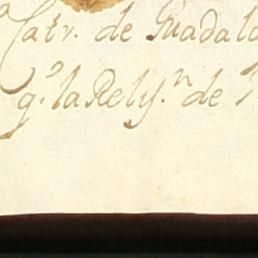 Catr. de Guadal
q.º la Rely.ⁿ de